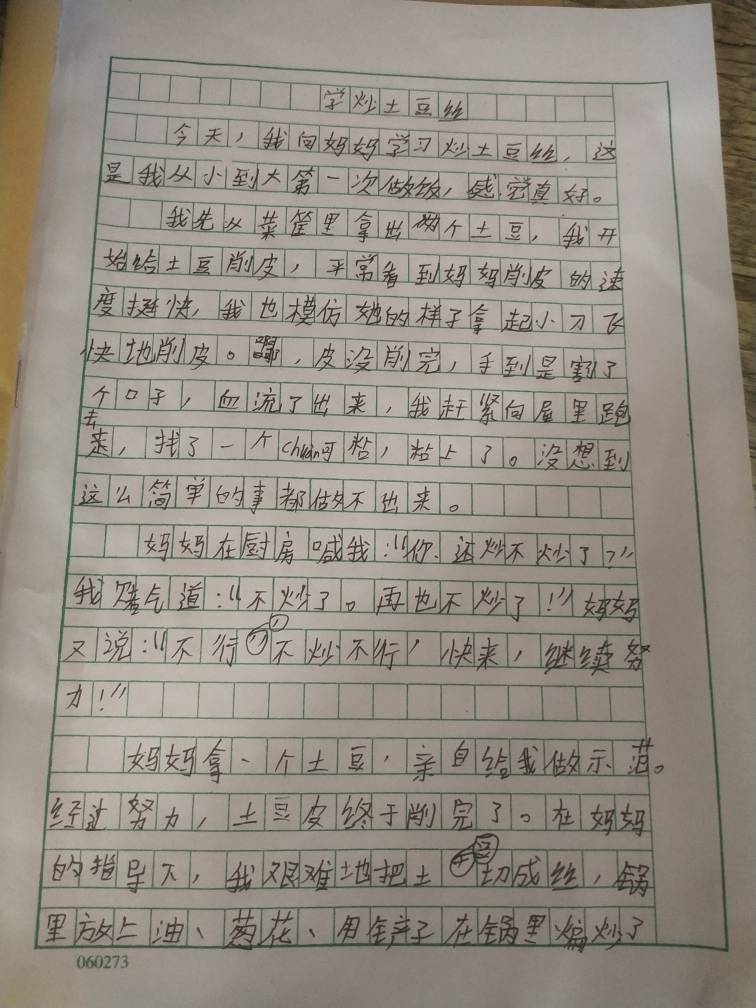 学炒土豆丝
今天，我向妈妈学习炒土豆丝，这
是我从小到大第一次做饭，感觉真好。
我先从菜筐里拿出两个土豆，我开
始给土豆削皮，平常看到妈妈削皮的速
度挺快，我也模仿她的样子拿起小刀飞
快地削皮。，皮没削完，手到是割了
个口子，血流了出来，我赶紧向屋里跑
去，找了一个chuàng可粘，粘上了。没想到
这么简单的事都做不出来。
妈妈在厨房喊我：“你还炒不炒了？”
我赌气道：“不炒了。再也不炒了！”妈妈
又说：“不行，不炒不行，快来，继续努
力！”
妈妈拿一个土豆，亲自给我做示范。
经过努力，土豆皮终于削完了。在妈妈
的指导下，我艰难地把土豆切成丝，锅
里放上油、葱花、用铲子在锅里煸炒了
060273